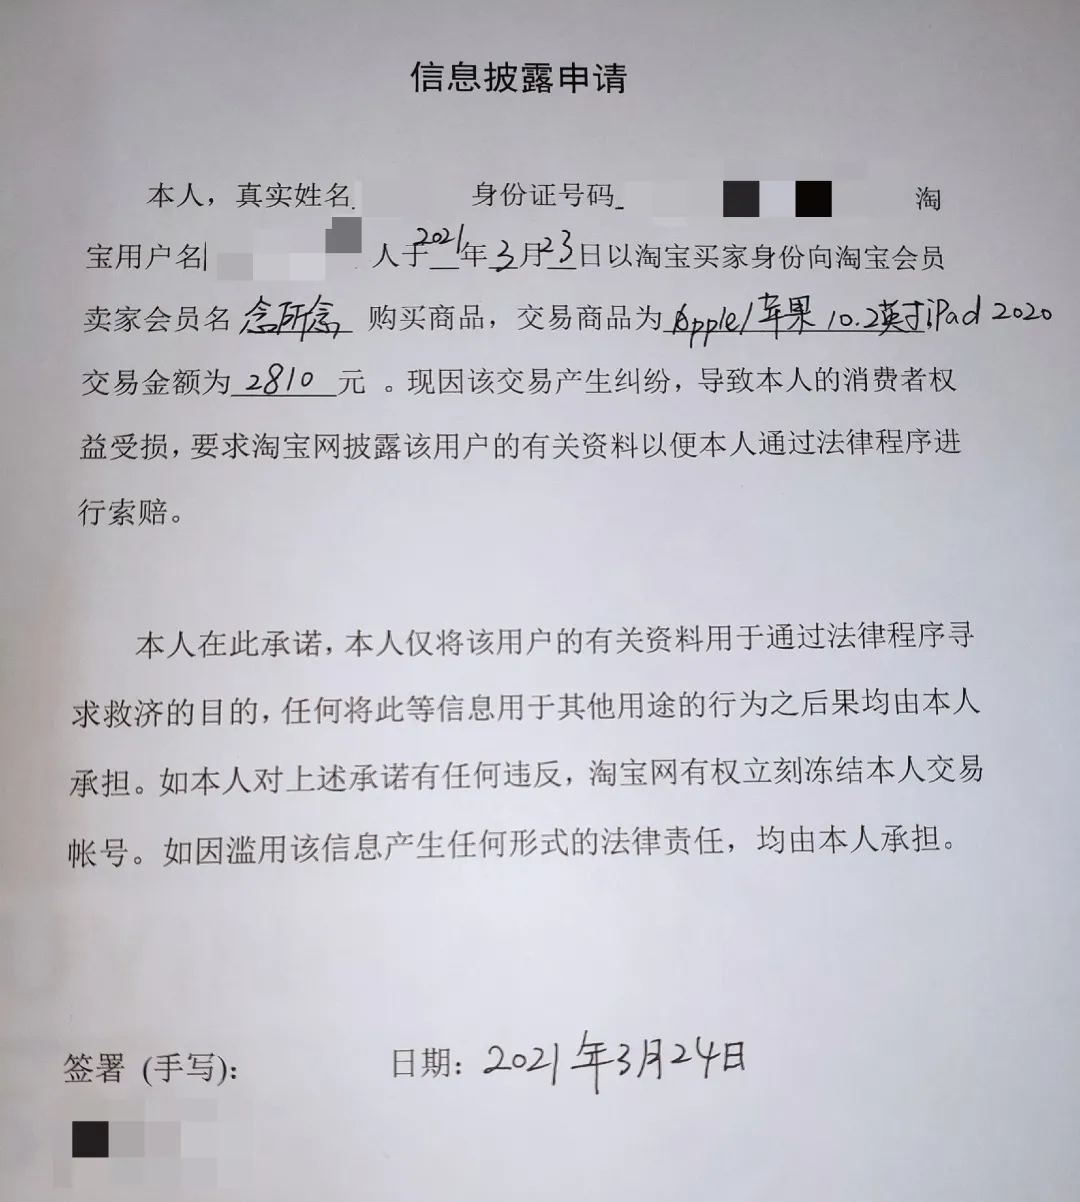 信息披露申请
本人，真实姓名 身份证号码 淘
宝用户名 人于2021年3月23日以淘宝买家身份向淘宝会员
卖家会员名 念所念 购买商品，交易商品为 Apple/苹果 10.2英寸iPad 2020
交易金额为 2810 元 。现因该交易产生纠纷，导致本人的消费者权
益受损，要求淘宝网披露该用户的有关资料以便本人通过法律程序进
行索赔。
本人在此承诺，本人仅将该用户的有关资料用于通过法律程序寻
求救济的目的，任何将此等信息用于其他用途的行为之后果均由本人
承担。如本人对上述承诺有任何违反，淘宝网有权立刻冻结本人交易
帐号。如因滥用该信息产生任何形式的法律责任，均由本人承担。
签署 (手写)： 日期：2021年3月24日